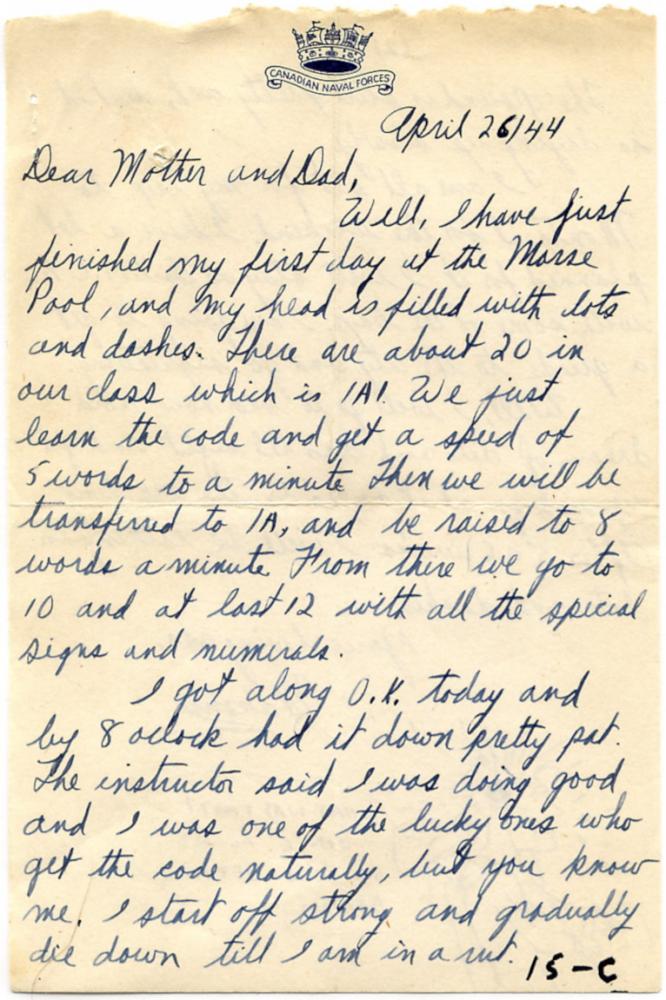 CANADIAN NAVAL FORCES
April 26/44
Dear Mother and Dad,
Well, I have just
finished my first day at the Morse
Pool, and my head is filled with dots
and dashes. There are about 20 in
our class which is 1A1. We just
learn the code and get a speed of
5 words to a minute Then we will be
transferred to 1A, and be raised to 8
words a minute From there we go to
10 and at last 12 with all the special
signs and numerals.
I got along O.K. today and
by 8 oclock had it down pretty pat.
The instructor said I was doing good
and I was one of the lucky ones who
get the code naturally, but you know
me. I start off strong and gradually
die down till I am in a rut.
15-C